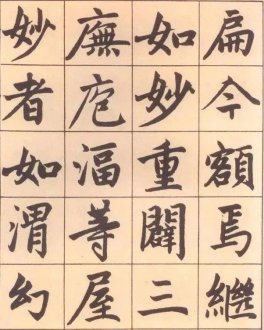 扁今額焉繼
如妙重闢三
廡庖湢等屋
妙者如渭幻